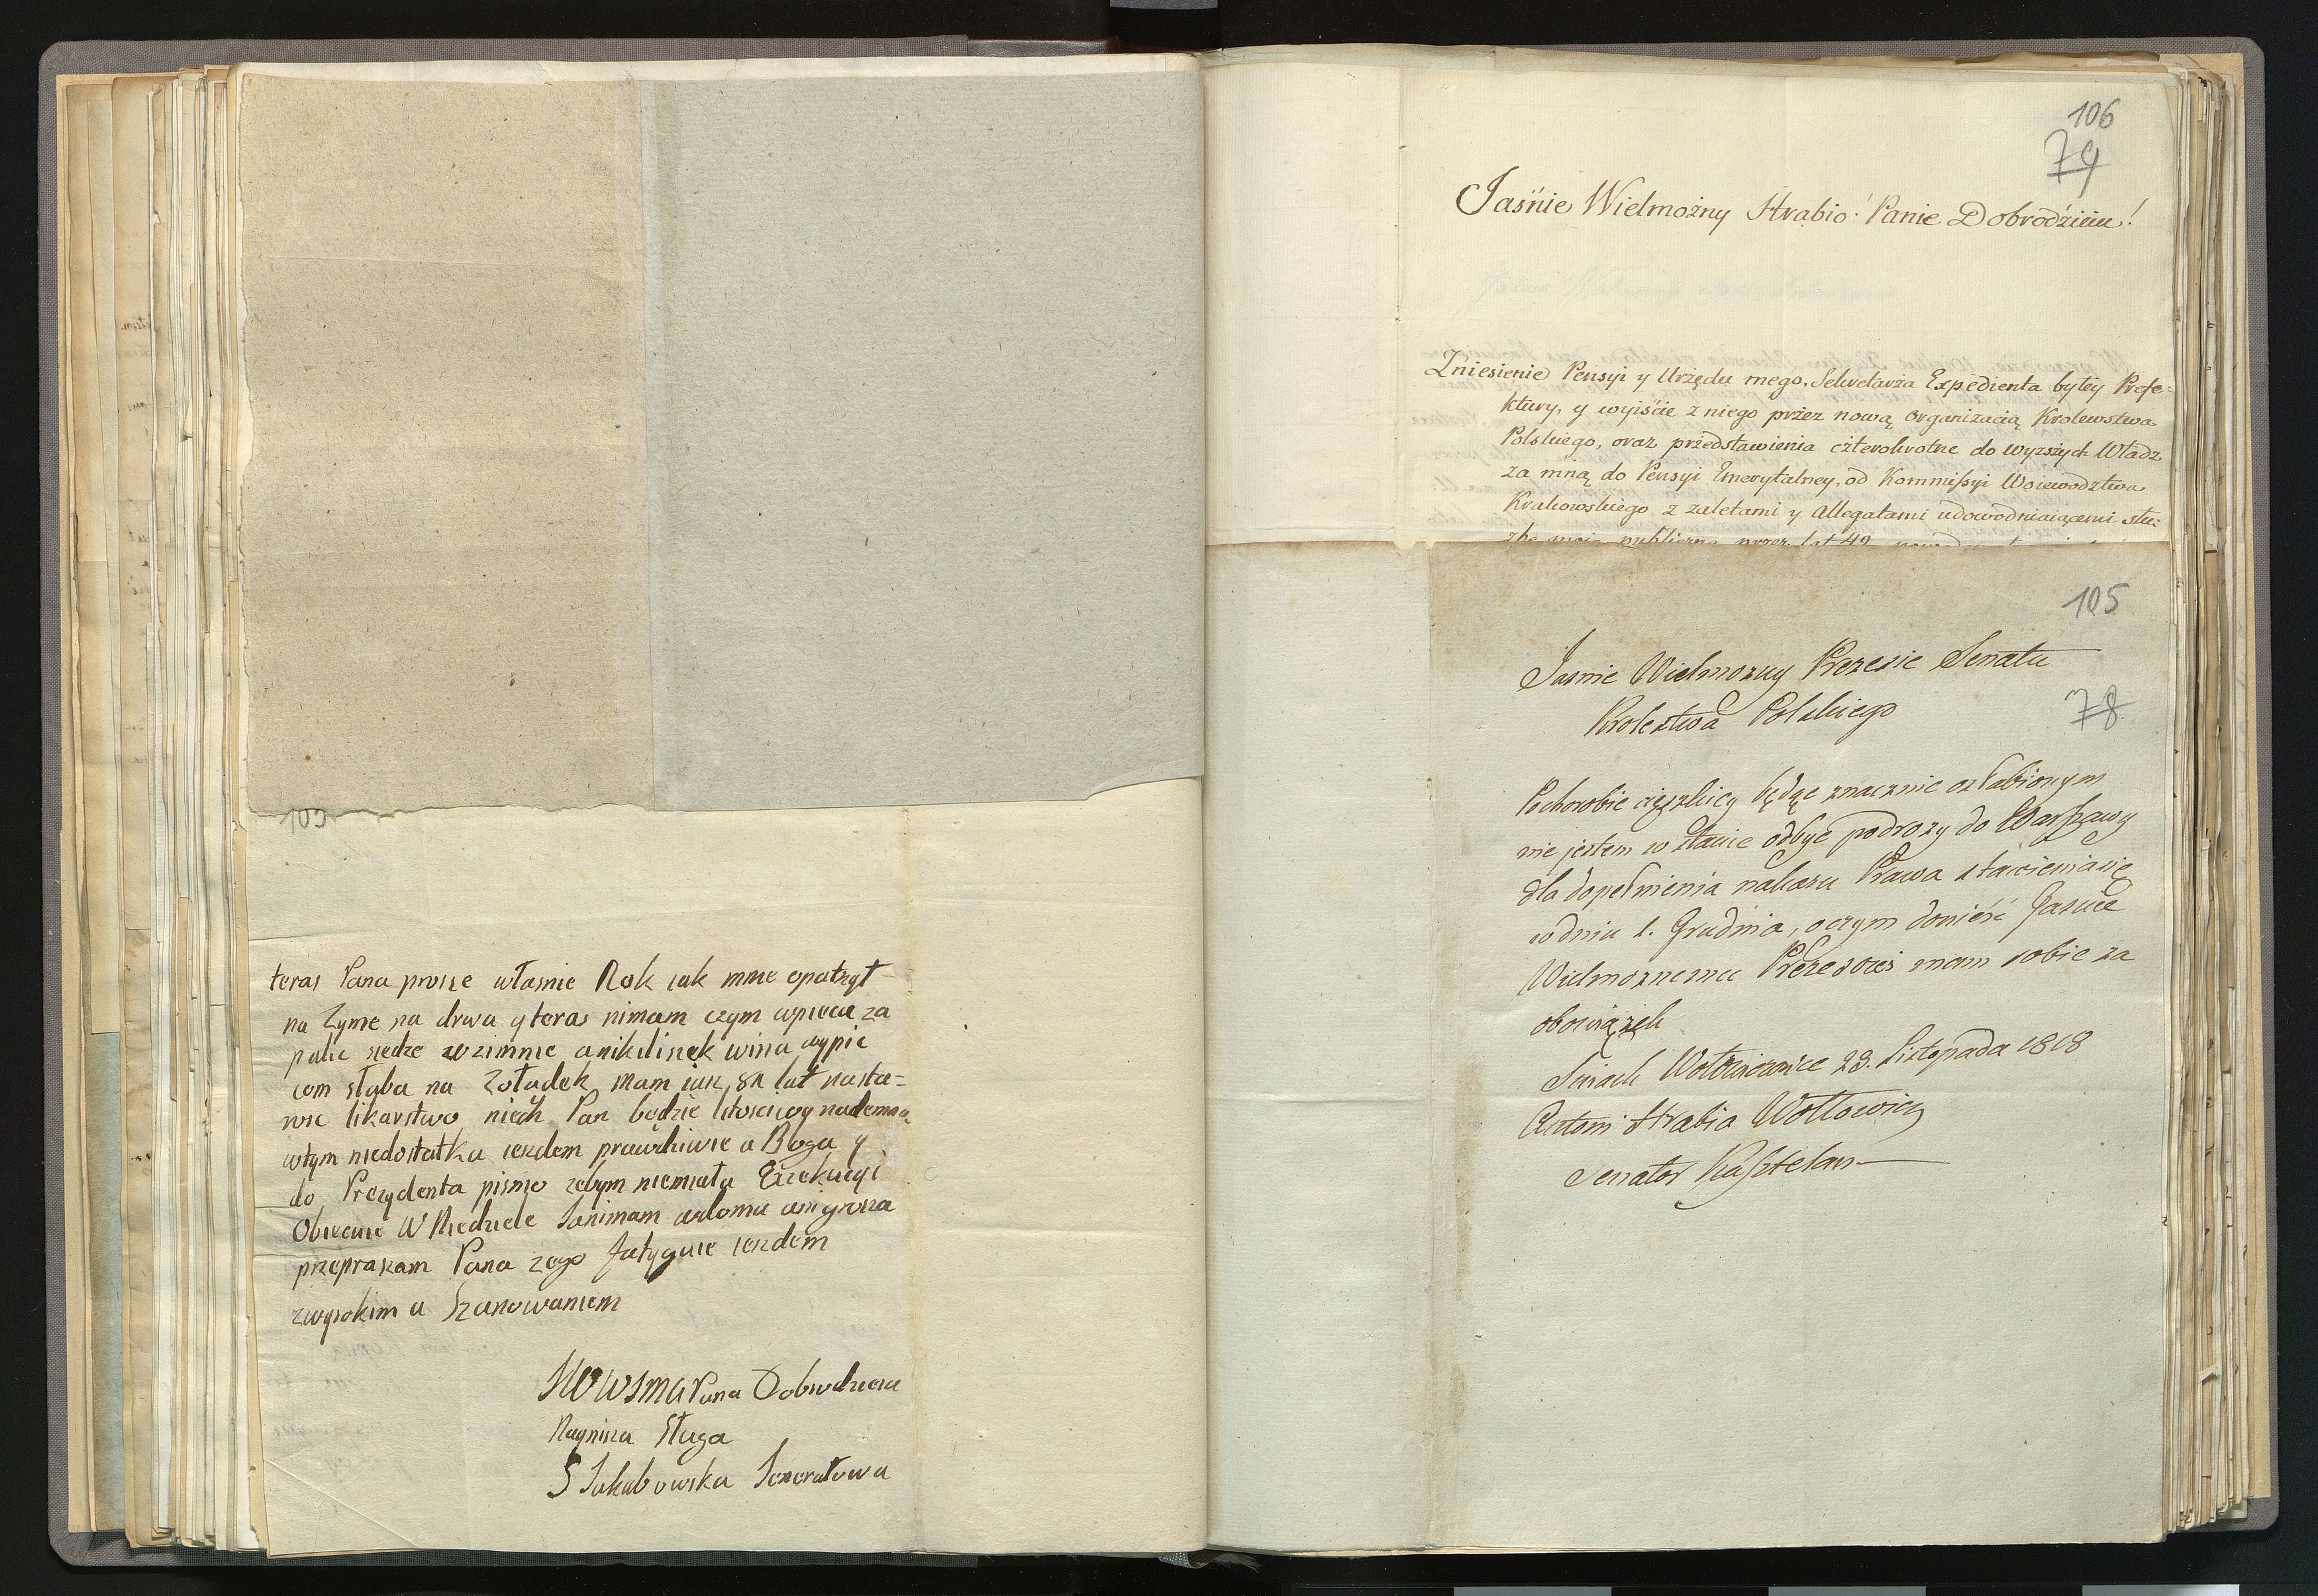 103
teras Pana prosze własnie Rok iak mnie opatrzył
na Zyme na drwa y teras nimam czym wpiecu za
palic siedze wzimnie anikilisek wina wypic
com słaba na Zoładek mam iusz 81 lat nasta=
wic likarstwo niech Pan będzie litosciwy nademną
wtym niedostatku iezdem prawdziwie a Boga y
do Prezydenta pismo zebym niemiała Exekucyi
Obiecuie W Niedziele
przeprazam Pana zego fatyguie iezdem
zwysokim u Szanowaniem
Pana Dobrodzieia
Nayniza Sługa
S Jakubowska Jenerałowa
106
79
Jaśnie Wielmożny Hrabio! Panie Dobrodzieiu!
Zniesienie Pensyi y Urzędu mego, Sekretarza Expedienta byłey Prefe:
ktury, y wyiście z niego przez nową organizacią Krolewstwa
Polskiego, oraz przedstawienia czterokrotne do wyzszych Władz
za mną do Pensyi Emerytalney, od Kommissyi Woiewodztwa
Krakowskiego z zaletami y Allegatami udowodniaiącemi słu:
żbę moią publiczną przez lat 42
105
Jasnie Wielmozny Prezesie Senatu
Krolestwa Polskiego
78
Pochorobie cięszkiey będąc znacznie osłabionym
nie jestem w stanie odbyc podrozy do Warszawy
dla dopełnienia nakazu Prawa stawieniasię
w dniu 1. Grudnia, oczym donieść Jasnie
Wielmoznemu Prezesowi mam sobie za
obowiązek
23. Listopada 1818
Antoni Hrabia Wołłowicz
Senator Kasztelan